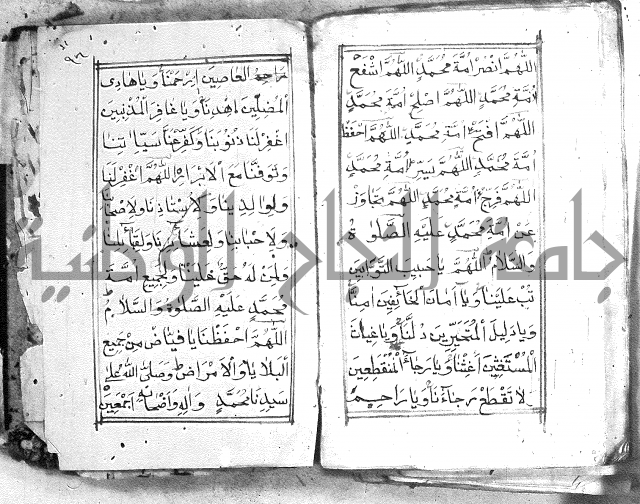 اللهم انصر امة محمد اللهم اشفع
امة محمد اللهم اصلح امة محمد
اللهم افتح امة محمد اللهم احفظ
امة محمد اللهم يسر امة محمد
اللهم فرج امة محمد اللهم تجاوز
عن امة محمد عليه الصلوة
والسلام اللهم يا حبيب التوابين
تب علينا ويا امان الخائفين امنا
ويا دليل المتحيرين دلنا ويا غياث
المستغيثين اغثنا ويا رجاء المنقطعين
لا تقطع رجاءنا ويا راحم
راحم العاصين ارحمنا ويا هادى
المضلين اهدنا ويا غافر المذنبين
اغفر لنا ذنوبنا وكفر عنا سيئاتنا
وتوفنا مع الابرار اللهم اغفر لنا
ولوالدينا ولاستاذنا ولاصحابنا
ولاحبابنا ولعشائرنا ولقبائلنا
ولمن له حق علينا ولجميع امة
محمد عليه الصلوة والسلام
اللهم احفظنا يا فياض من جميع
البلايا والامراض وصلى الله على
سيدنا محمد واله واصحابه اجمعين
جامعة النجاح الوطنية